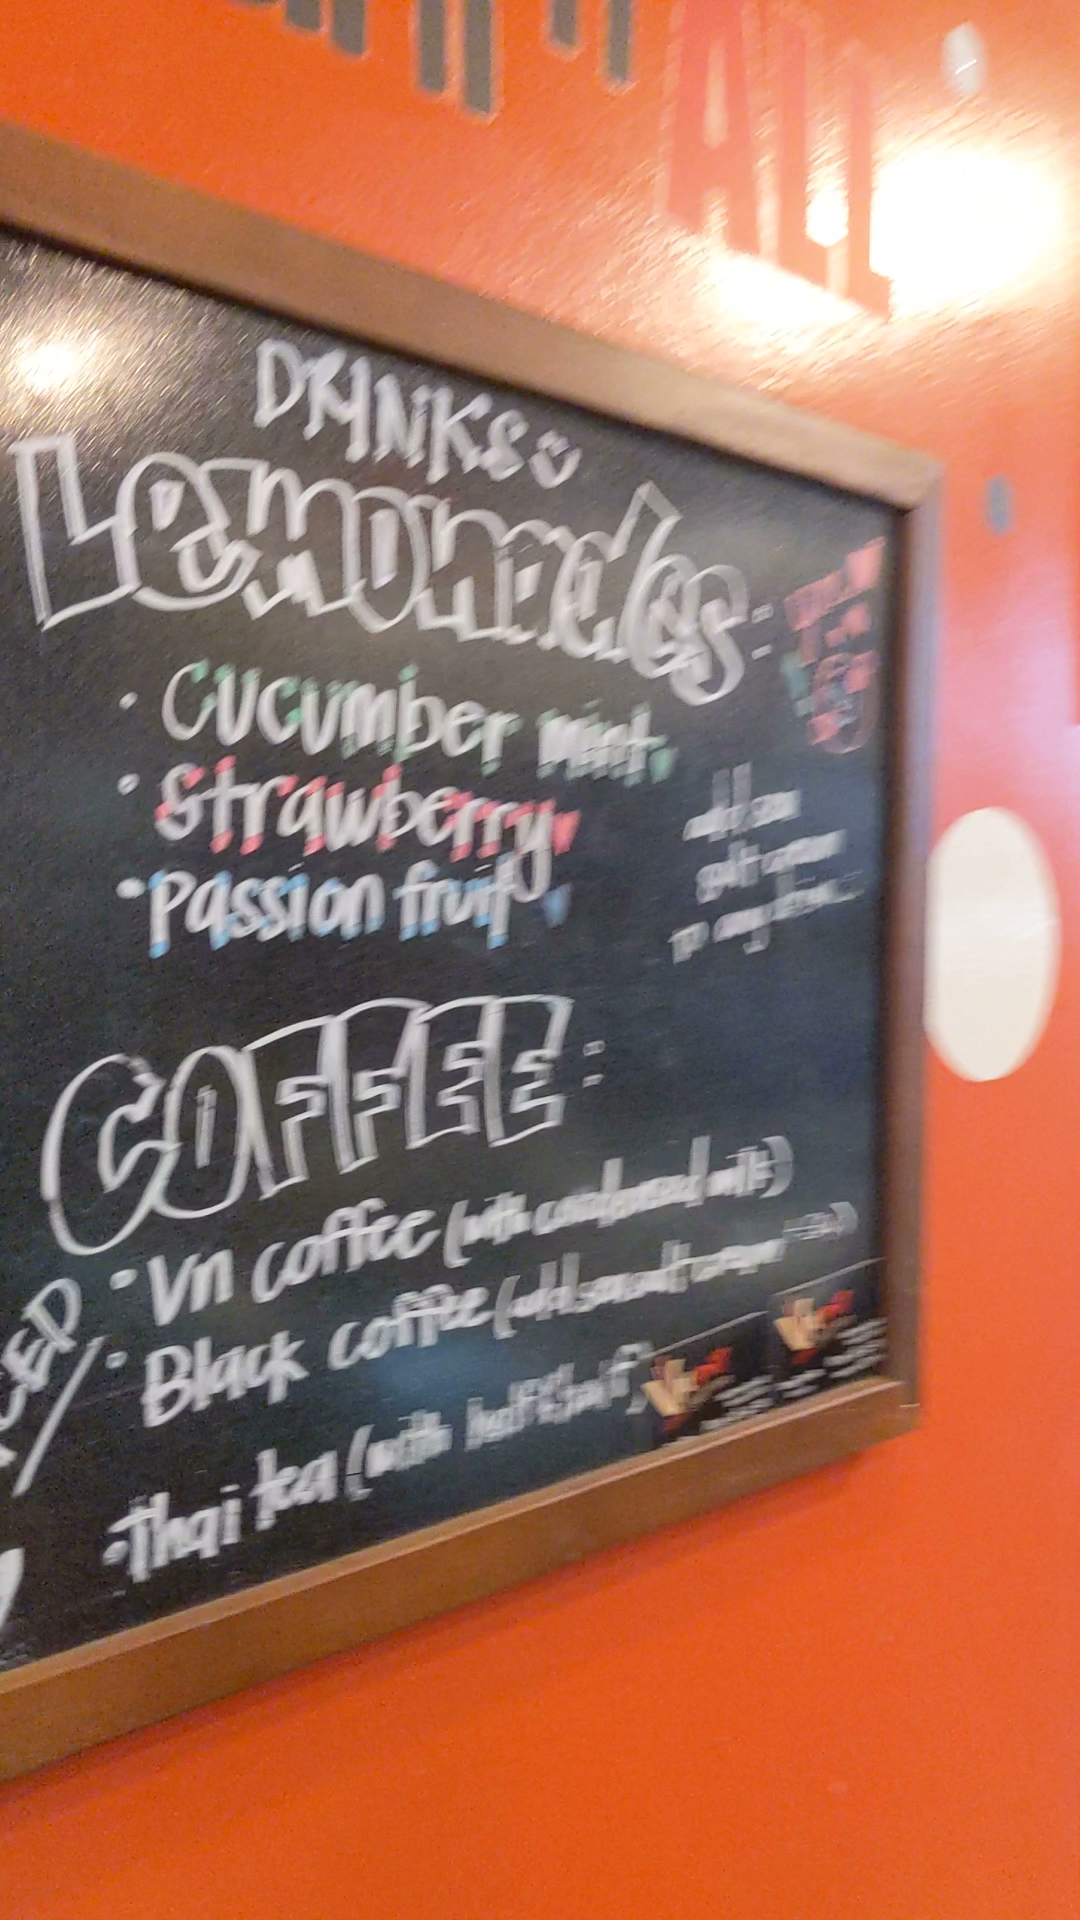 ALL
DRINKS
Lemonades:
· Cucumber mint
· Strawberry
· Passion fruit
add sea
salt cream
to any drink
COFFEE:
· VN coffee (with condensed milk)
· Black coffee (add sea salt cream
· Thai tea (with half & half)